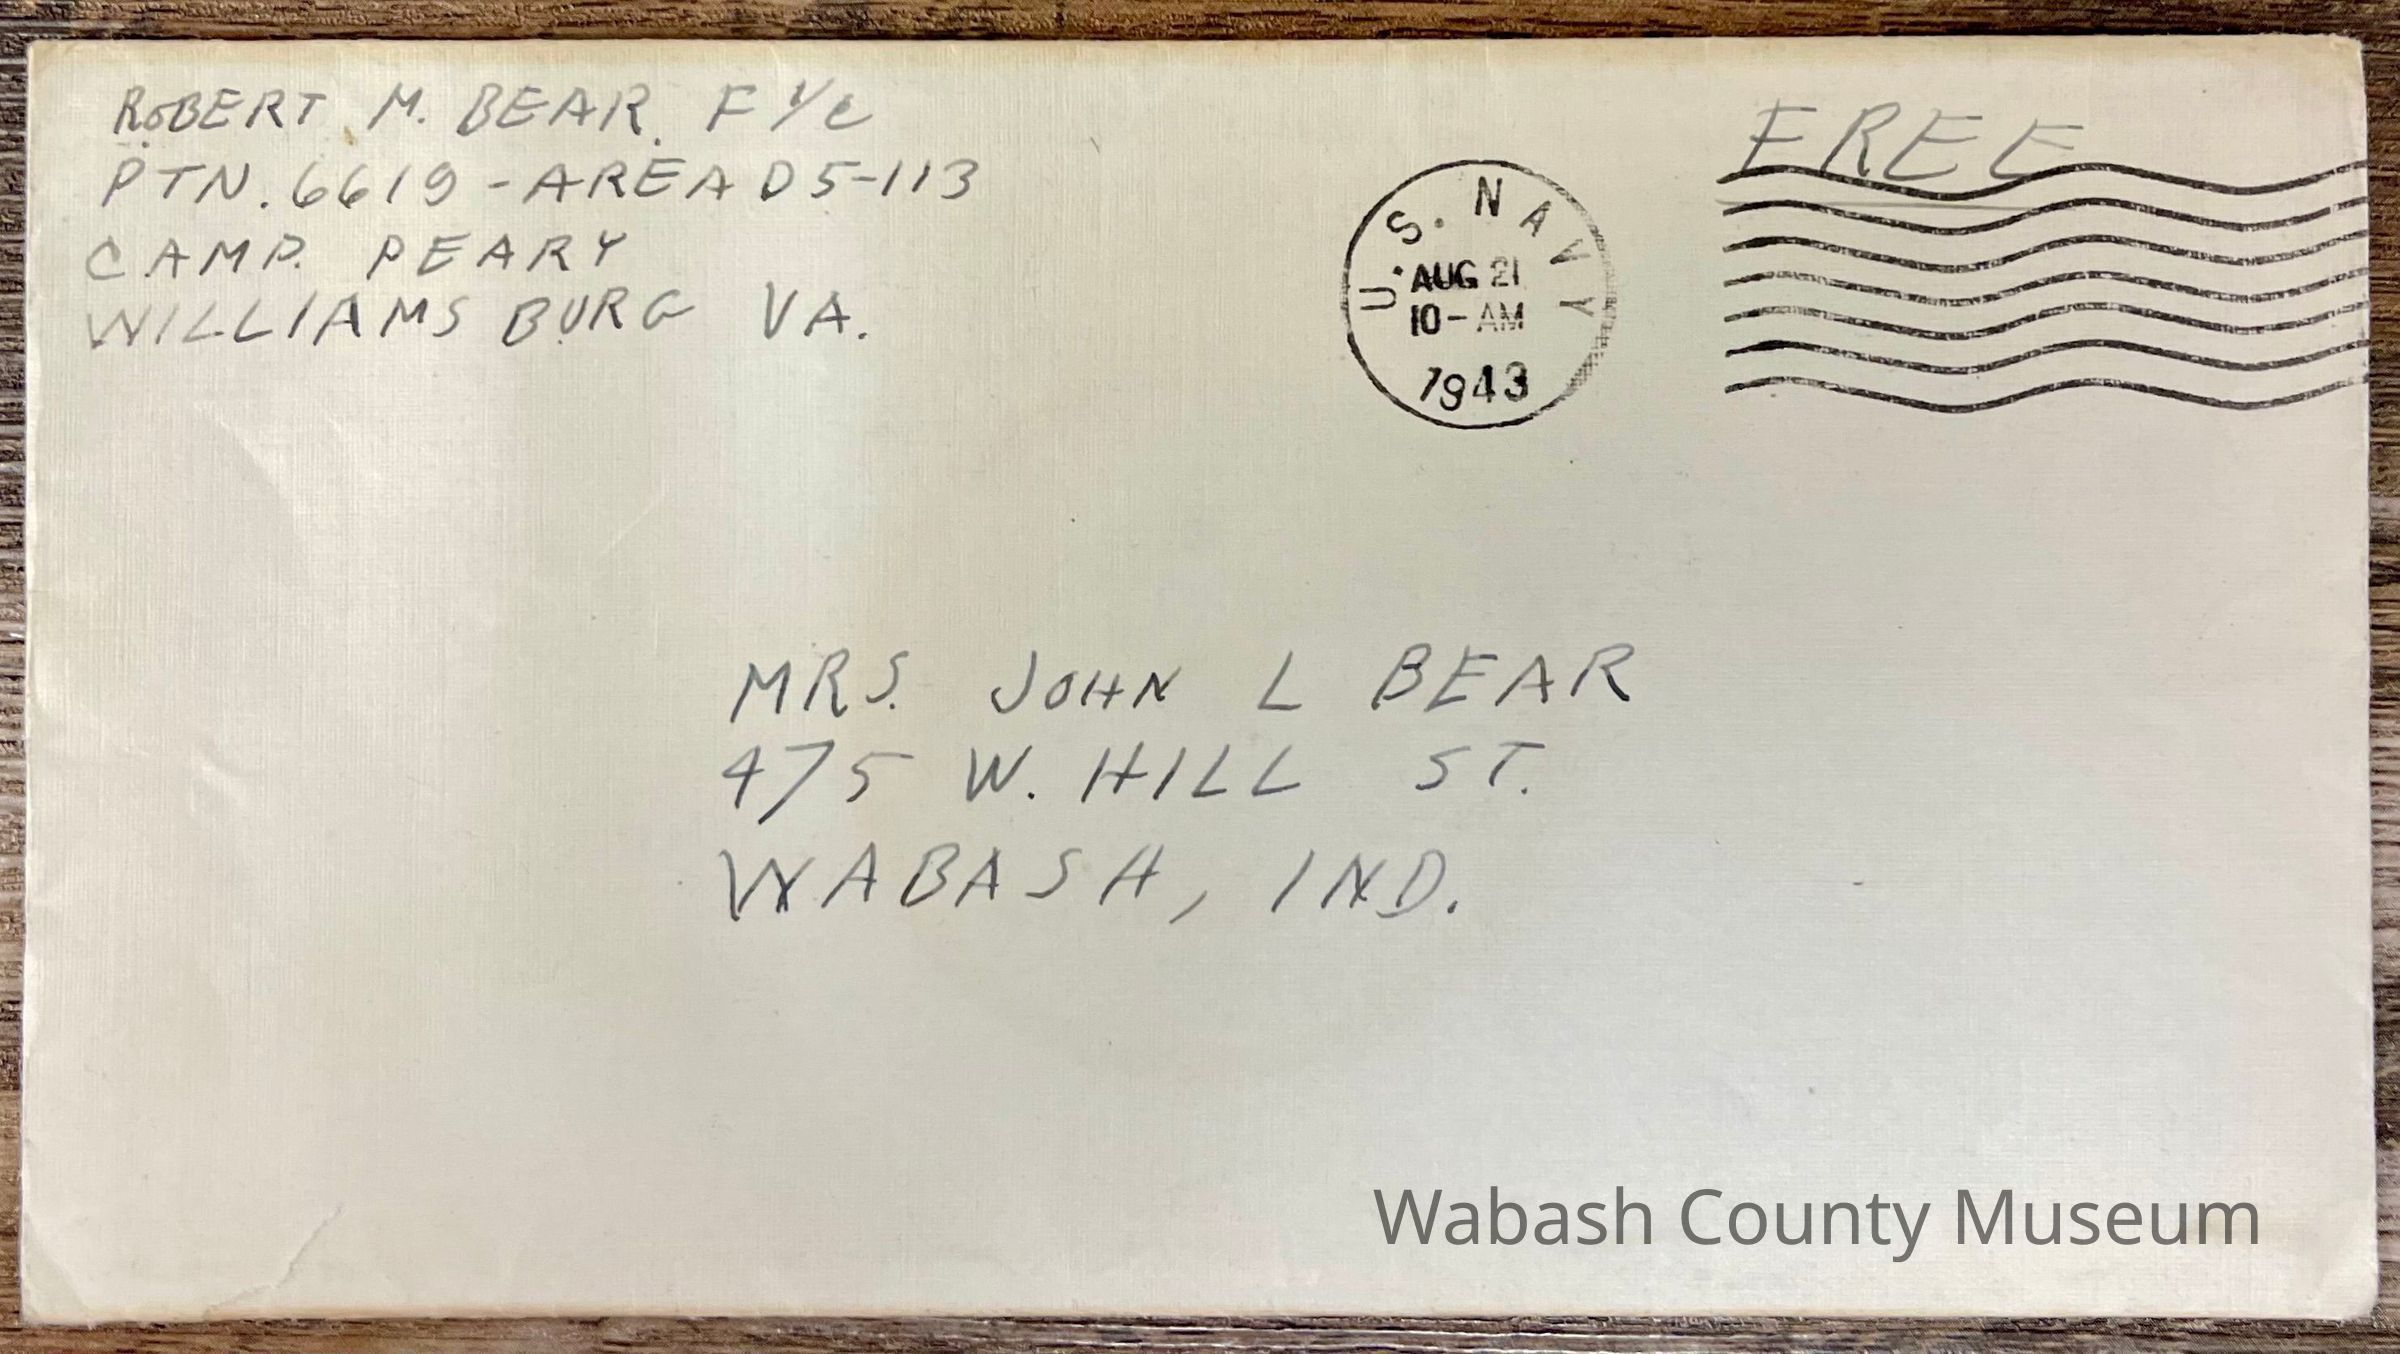 ROBERT M. BEAR F 1/C
PTN. 6619 - AREA D5-113
CAMP. PEARY
WILLIAMSBURG VA.
FREE
U.S. NAVY
AUG 21
10-AM
1943
MRS. JOHN L BEAR
475 W. HILL ST.
WABASH, IND.
Wabash County Museum